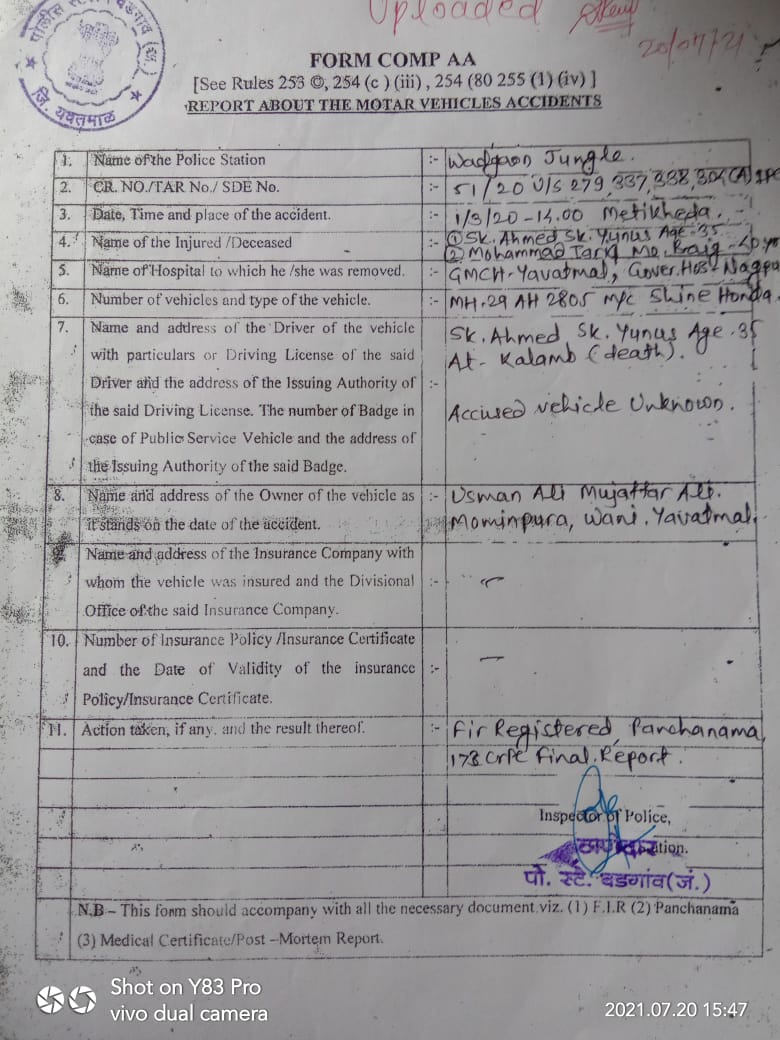 Uploaded
20/07/21
पोलीस स्टे वडगाव (जं.)
जि. यवतमाळ
FORM COMP AA
[See Rules 253 ©, 254 (c ) (iii) , 254 (80 255 (1) (iv) ]
REPORT ABOUT THE MOTAR VEHICLES ACCIDENTS
1. Name of the Police Station :- Wadgaon Jungle.
2. CR. NO./TAR No./ SDE No. :- 51/20 U/S 279, 337, 338, 304(A) IPC
3. Date, Time and place of the accident. :- 1/3/20 - 14.00 Metikheda.
4. Name of the Injured /Deceased :- ① Sk. Ahmed Sk. Yunus Age-35
② Mohammad Tariq Mo. Baig
5. Name of Hospital to which he /she was removed. :- GMCH-Yavatmal, Gover. Hos- Nagpu
6. Number of vehicles and type of the vehicle. :- MH.29 AH 2805 M/C Shine Honda.
7. Name and address of the Driver of the vehicle Sk. Ahmed Sk. Yunus Age. 35
with particulars or Driving License of the said At- Kalamb (death).
Driver and the address of the Issuing Authority of :-
the said Driving License. The number of Badge in Accused vehicle Unknown.
case of Public Service Vehicle and the address of
the Issuing Authority of the said Badge.
8. Name and address of the Owner of the vehicle as :- Usman Ali Mujaffar Ali.
it stands on the date of the accident. Mominpura, Wani. Yavatmal.
9. Name and address of the Insurance Company with
whom the vehicle was insured and the Divisional :- -
Office of the said Insurance Company.
10. Number of Insurance Policy /Insurance Certificate
and the Date of Validity of the insurance :- -
Policy/Insurance Certificate.
11. Action taken, if any. and the result thereof. :- Fir Registered, Panchanama,
173 CrPC Final. Report.
Inspector of Police,
ठाणेदार ation.
पो. स्टे. वडगांव(जं.)
N.B – This form should accompany with all the necessary document viz. (1) F.I.R (2) Panchanama
(3) Medical Certificate/Post –Mortem Report.
Shot on Y83 Pro
vivo dual camera
2021.07.20 15:47